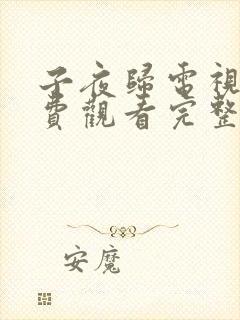 子夜歸電視
費觀看完整
安魔